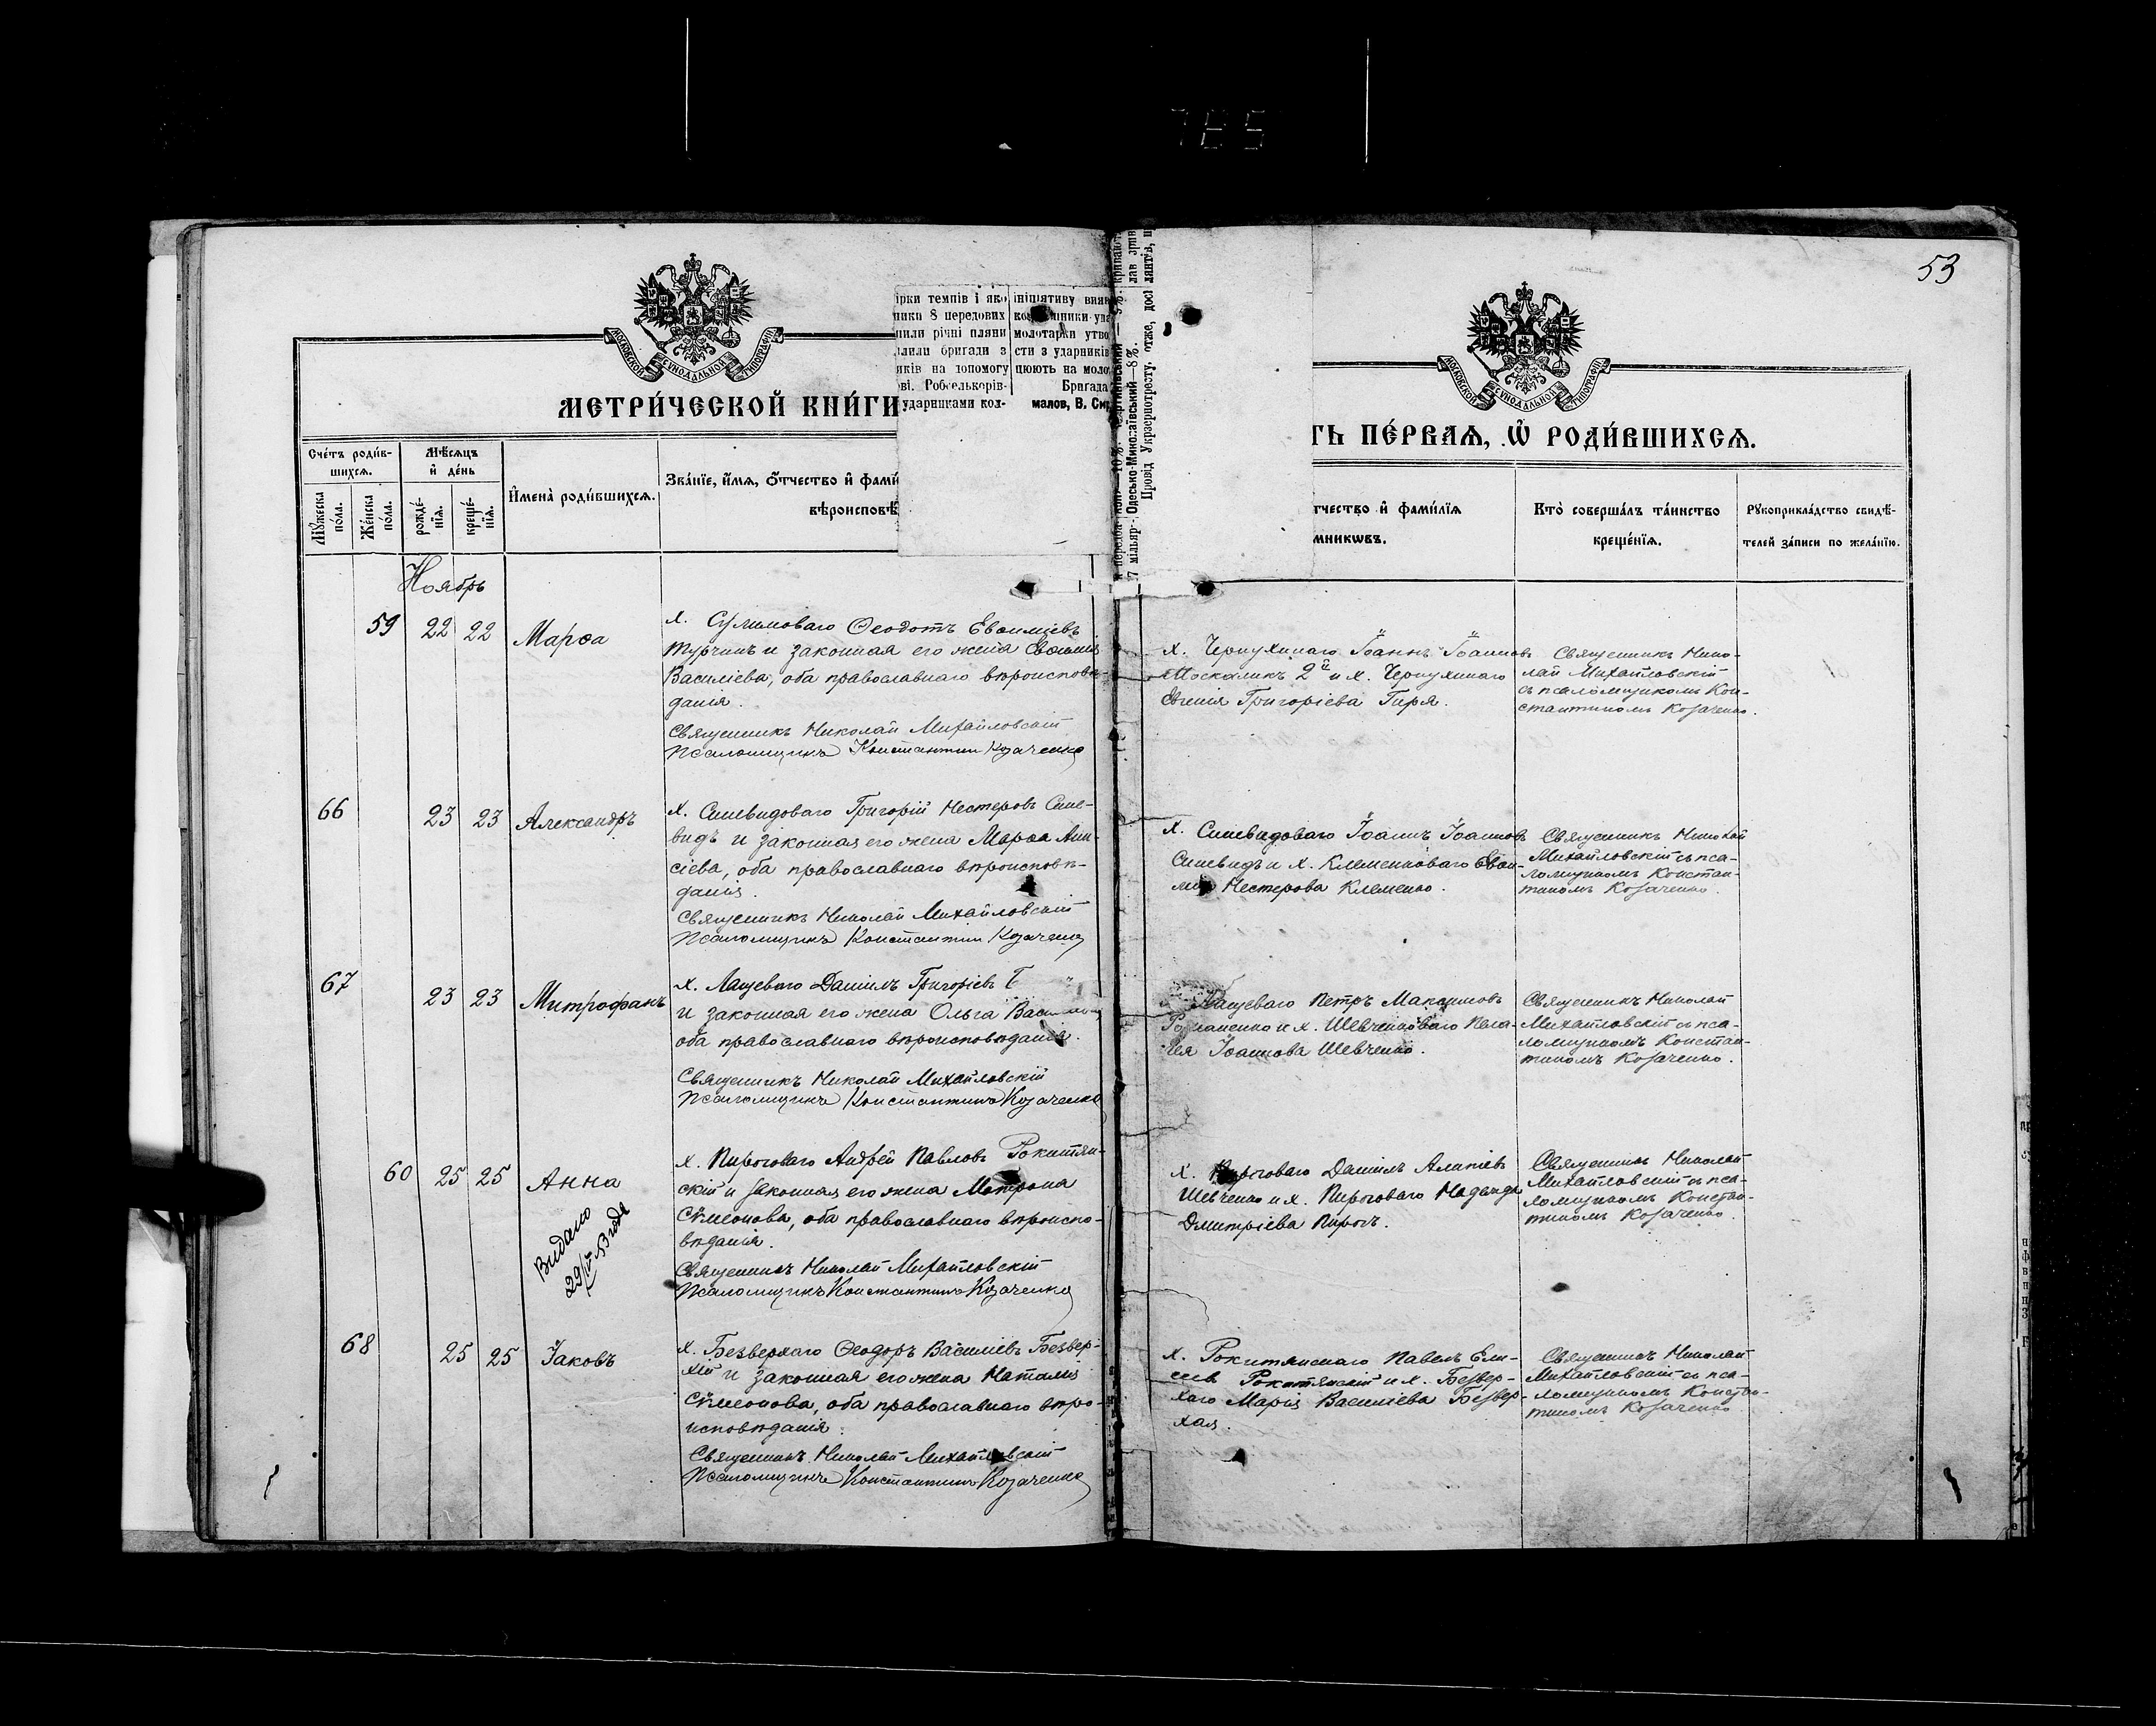 785
53
МОСКОВСКОЙ СѴНОДАЛЬНОЙ ТИПОГРАФІИ
МЕТРИ́ЧЕСКОЙ КНИ́ГИ
ірки темпів і яко
ники 8 передових
нили річні пляни
лили бригади з
иків на допомогу
ві. Робселькорів-
ударниками кол-
ініціятиву вияв
молотарки утво
сти з ударників
цюють на моло
Бригада
малов, В. Си
Одесько-Миколаївський—8%.
Провід Укрзернотресту, отже, досі
МОСКОВСКОЙ СѴНОДАЛЬНОЙ ТИПОГРАФІИ
ТЬ ПЕ́РВАѦ, Ѿ РОДИ́ВШИХСѦ.
Сче́тъ роди́в-
шихсѧ.
Мѣ́сяцъ
и҆ де́нь
Мꙋ́жеска
по́ла.
Же́нска
по́ла.
рожде́-
нїѧ.
креще́-
нїѧ.
И҆мена̀ роди́вшихсѧ.
Зва́нїе, и҆́мѧ, ѻ҆́тчество и҆ фами́
вѣроисповѣ́
тчество и҆ фами́лїѧ
мникѡвъ.
Кто̀ соверша́лъ та́инство
креще́нїѧ.
Рꙋкоприкла́дство свидѣ́-
телей за́писи по жела́нїю.
Ноябрь
59 22 22 Марѳа
х. Сулимоваго Ѳеодотъ Евѳиміевъ
Турчинъ и законная его жена Евѳимія
Василіева, оба православнаго вѣроисповѣ-
данія.
Священникъ Николай Михайловскій
Псаломщикъ Константинъ Козаченко
х. Чернухинаго Іоаннъ Іоанновъ
Москаликъ 2й и х. Чернухинаго
Евгенія Григоріева Гиря.
Священникъ Нико-
лай Михайловскій
съ псаломщикомъ Кон-
стантиномъ Козаченко.
66 23 23 Александръ
х. Синевидоваго Григорій Нестеровъ Сине-
видъ и законная его жена Марѳа Ани-
сіева, оба православнаго вѣроисповѣ-
данія.
Священникъ Николай Михайловскій
Псаломщикъ Константинъ Козаченко
х. Синевидоваго Іоаннъ Іоанновъ
Синевидъ и х. Клеменковаго Евѳи-
Нестерова Клеменко.
Священникъ Николай
Михайловскій съ пса-
ломщикомъ Констан-
тиномъ Козаченко.
67 23 23 Митрофанъ
х. Лащеваго Даніилъ Григоріевъ
и законная его жена Ольга
оба православнаго вѣроисповѣданія.
Священникъ Николай Михайловскій
Псаломщикъ Константинъ Козаченко
Лащеваго Петръ Максимовъ
Романенко и х. Шевченковаго Пела-
гея Іоаннова Шевченко.
Священникъ Николай
Михайловскій съ пса-
ломщикомъ Констан-
тиномъ Козаченко.
60 25 25 Анна
Видано
х. Пироговаго Андрей Павловъ Рокитян-
скій и законная его жена Матрона
Сѵмеонова, оба православнаго вѣроиспо-
вѣданія.
Священникъ Николай Михайловскій
Псаломщикъ Константинъ Козаченко
х. Пироговаго Даніилъ Алипіевъ
Шевченко и х. Пироговаго Надежда
Дмитріева Пирогъ.
Священникъ Николай
Михайловскій съ пса-
ломщикомъ Констан-
тиномъ Козаченко.
68 25 25 Іаковъ
х. Безверхаго Ѳеодоръ Василіевъ Безвер-
хій и законная его жена Наталія
Сѵмеонова, оба православнаго вѣро-
исповѣданія.
Священникъ Николай Михайловскій
Псаломщикъ Константинъ Козаченко
х. Рокитянскаго Павелъ Ели-
сеевъ Рокитянскій и х. Безвер-
хаго Марія Василіева Безвер-
хая.
Священникъ Николай
Михайловскій съ пса-
ломщикомъ Констан-
тиномъ Козаченко